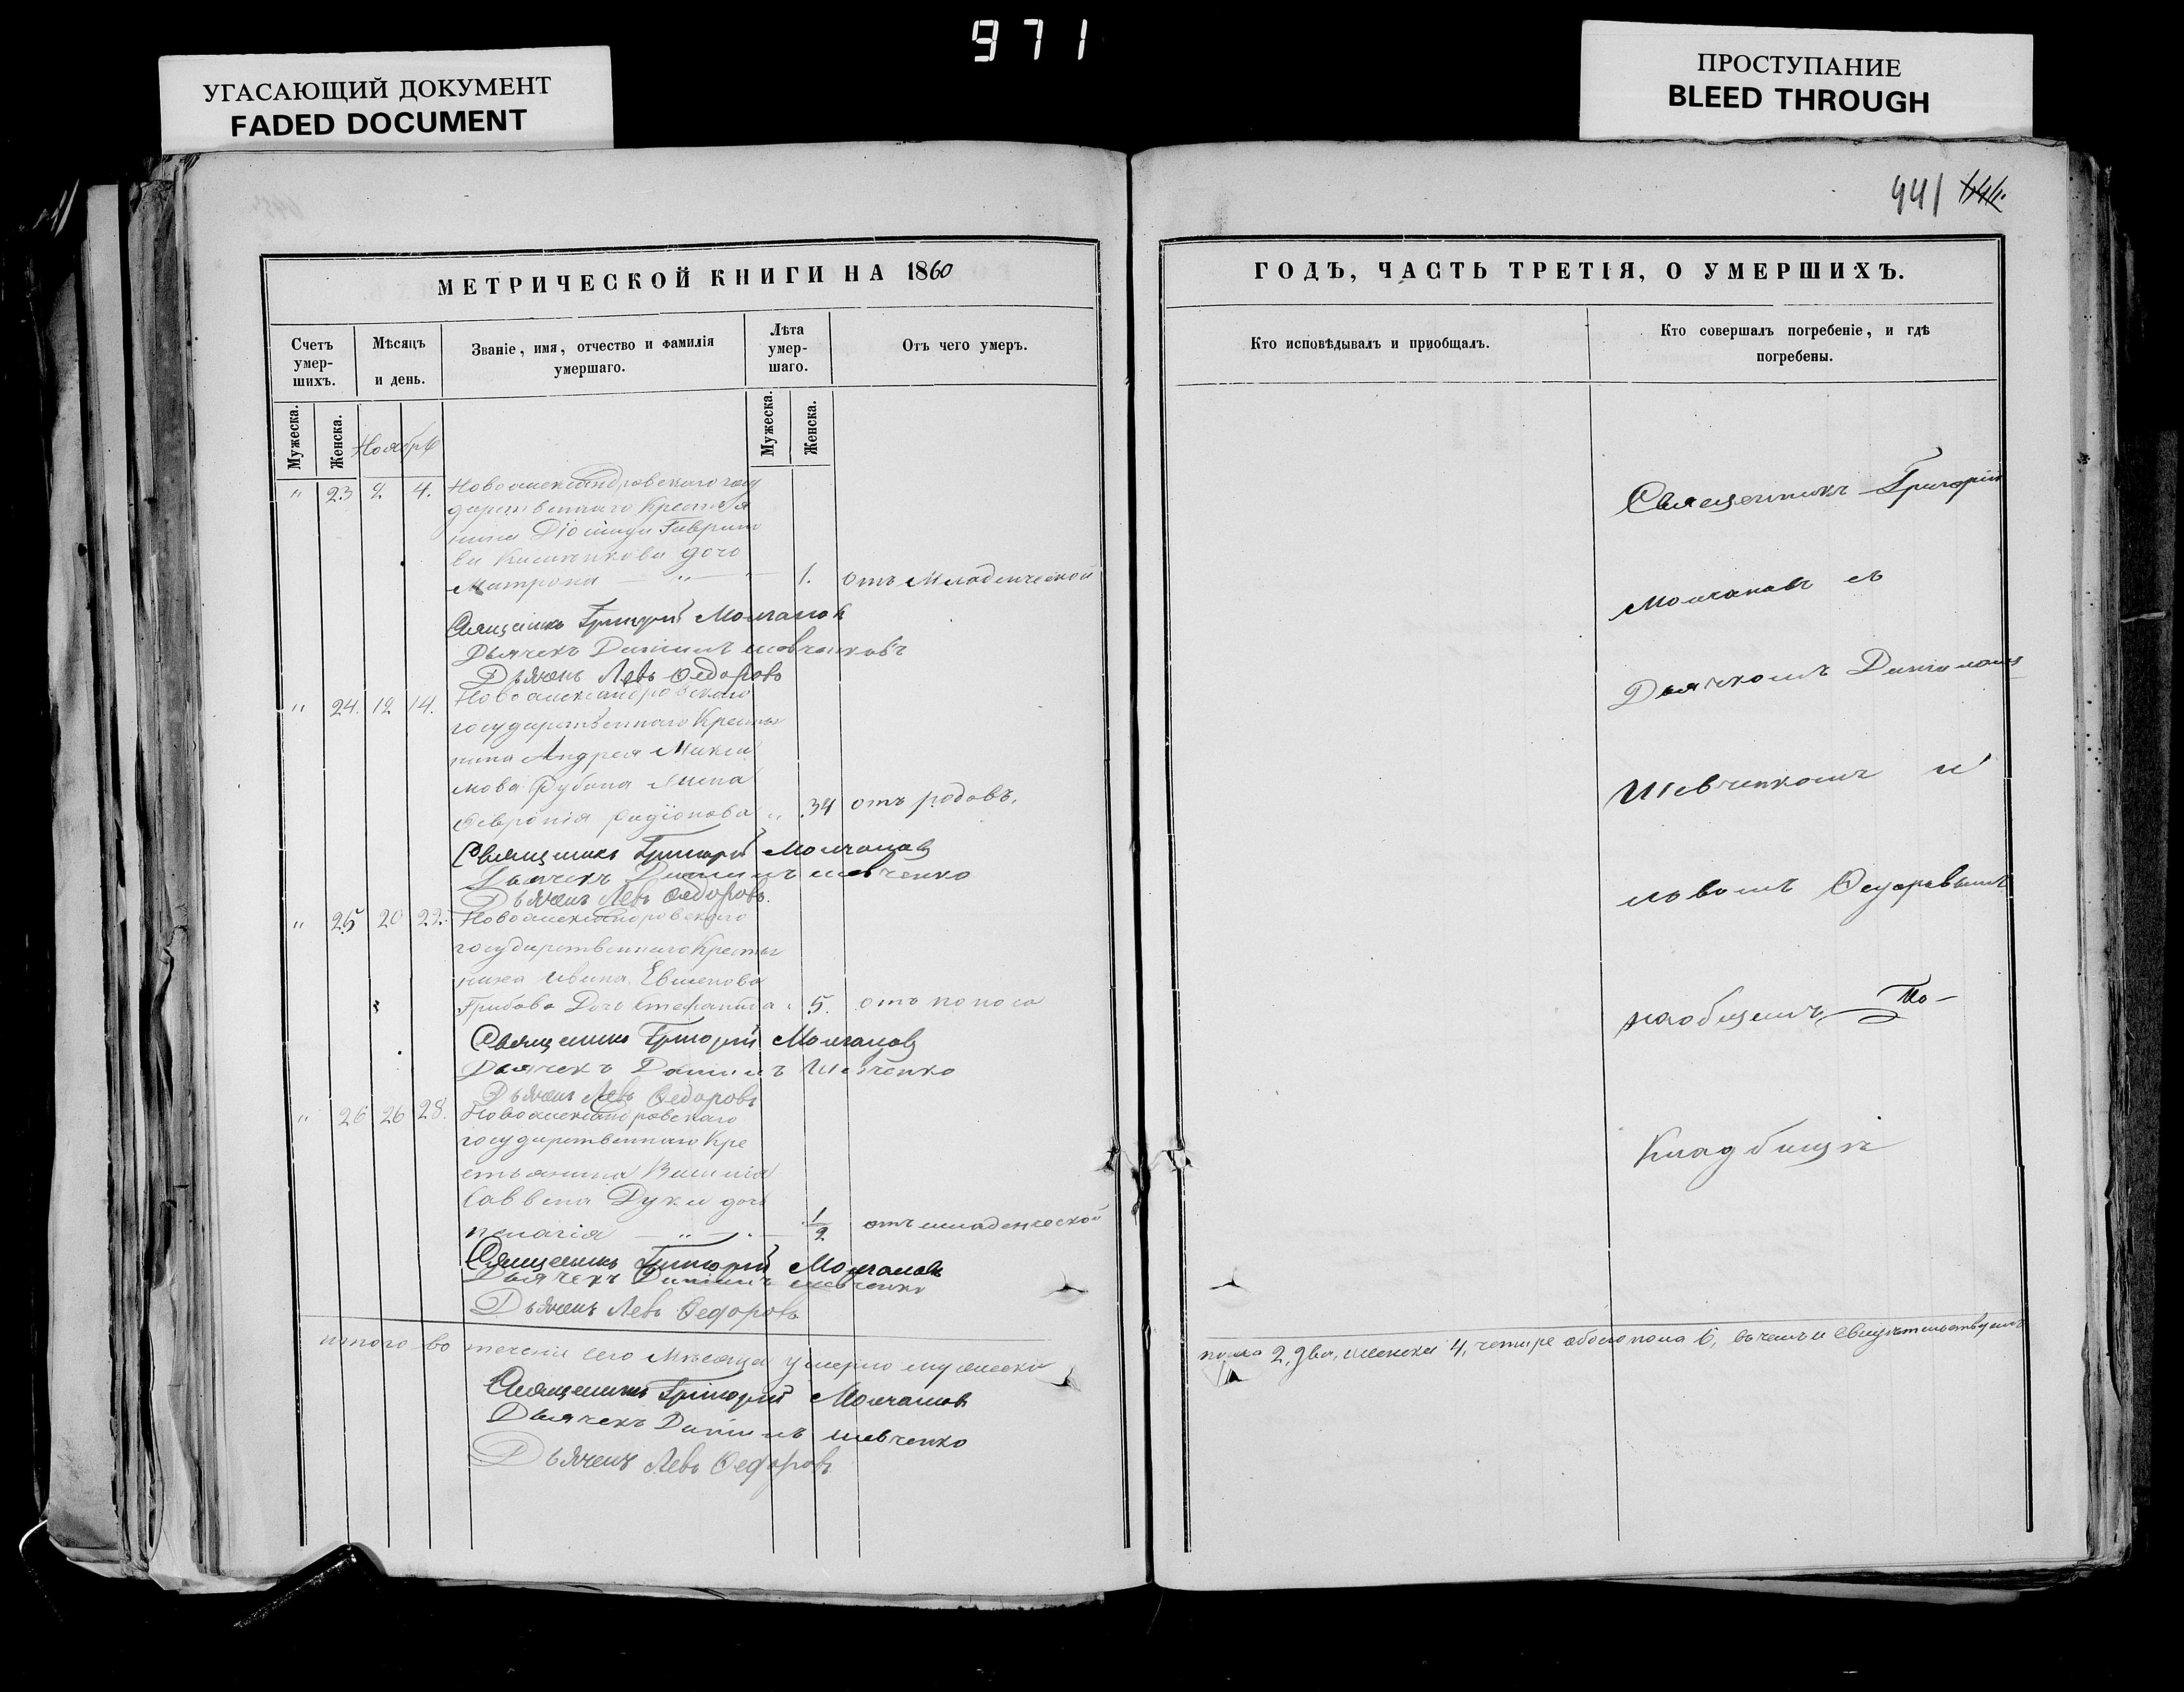 971
УГАСАЮЩИЙ ДОКУМЕНТ
FADED DOCUMENT
ПРОСТУПАНИЕ
BLEED THROUGH
441
МЕТРИЧЕСКОЙ КНИГИ НА 1860
Счетъ умер-шихъ.
Мѣсяцъ и день.
Званіе, имя, отчество и фамилія умершаго.
Лѣта умер-шаго.
Отъ чего умеръ.
Мужеска.
Женска.
Ноябрь
Мужеска.
Женска.
" 23 2 4. Новоалександровскаго госу
дарственнаго Крестья
нина Гаврило
ва дочь
Матрона — " — " — 1. отъ Младенческой
Священикъ Григорій Молчановъ
Дьячекъ Даніилъ
Дьячекъ Левъ Ѳедоровъ
" 24. 12 14. Новоалександровскаго
государственнаго Крестья
нина Андрея Макси
мова жена
Ѳевронія Радіонова " 34 отъ родовъ.
Священикъ Григорій Молчановъ
Дьячекъ Даніилъ Шевченко
Дьячекъ Левъ Ѳедоровъ.
" 25 20 22. Новоалександровскаго
государственнаго Крестья
нина Ивана
Грибова Дочь Стефанида " 5. отъ поноса
Священикъ Григорій Молчановъ
Дьячекъ Даніилъ Шевченко
Дьячекъ Левъ Ѳедоровъ
" 26 26 28. Новоалександровскаго
государственнаго Кре
стьянина Василія
Саввина Дуки дочь
Пелагія — " — " — 1/2 отъ младенческой
Священикъ Григорій Молчановъ
Дьячекъ Даніилъ Шевченко
Дьячекъ Левъ Ѳедоровъ
итого во теченіи сего Мѣсяца умерло мужеска
Священикъ Григорій Молчановъ
Дьячекъ Даніилъ Шевченко
Дьячекъ Левъ Ѳедоровъ
ГОДЪ, ЧАСТЬ ТРЕТІЯ, О УМЕРШИХЪ.
Кто исповѣдывалъ и пріобщалъ.
Кто совершалъ погребеніе, и гдѣ погребены.
Священникъ Григорій
Молчановъ съ
Дьячкомъ Даніиломъ
Шевченкомъ и
Львомъ Ѳедоровымъ
на общемъ
Кладбищѣ
пола 2, два, женска 4, четыре обоего пола 6, въ чемъ и свидѣтельствуемъ